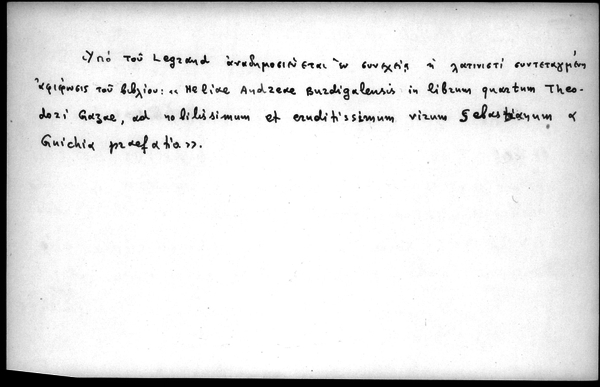 Ὑπό τοῦ Legrand ἀναδημοσιεύεται ἐν συνεχείᾳ ἡ λατινιστί συντεταγμένη
ἀφιέρωσις τοῦ βιβλίου: «Heliae Andreae Burdigalensis in librum quartum Theo-
dori Gazae, ad nobilissimum et eruditissimum virum Sebastianum a
Guichia praefatio».